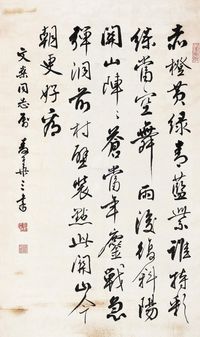 赤橙黄绿青蓝紫谁持彩
练当空舞雨后复斜阳
关山阵阵苍当年鏖战急
弹洞前村壁装点此关山今
朝更好看